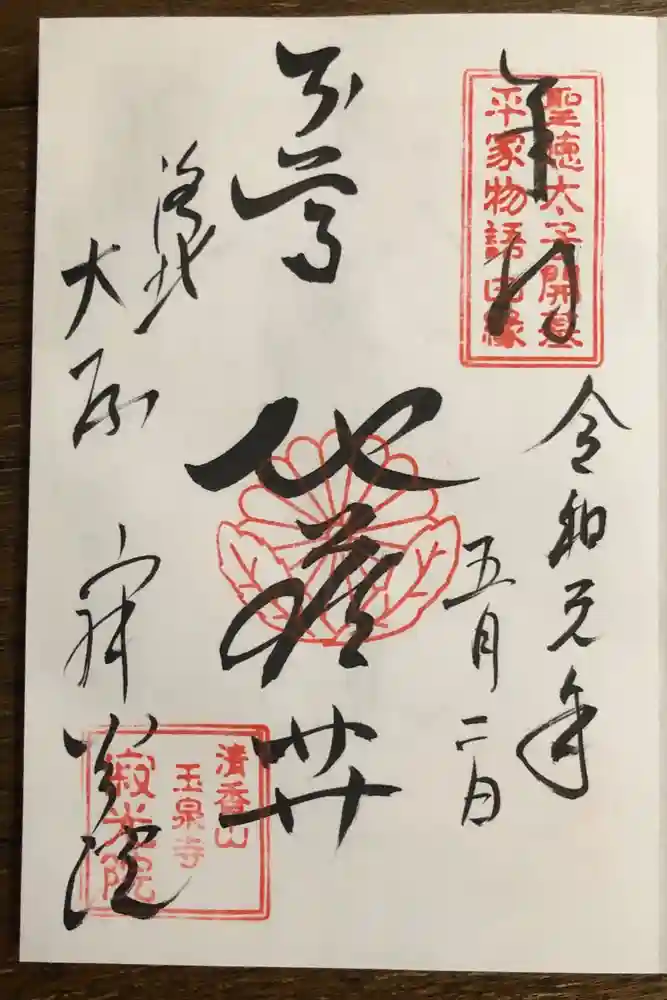 奉拝
聖徳太子開基
平家物語由縁
令和元年
五月二日
本尊
地蔵𦬇
洛北
大原
寂光院
清香山
玉泉寺
寂光院